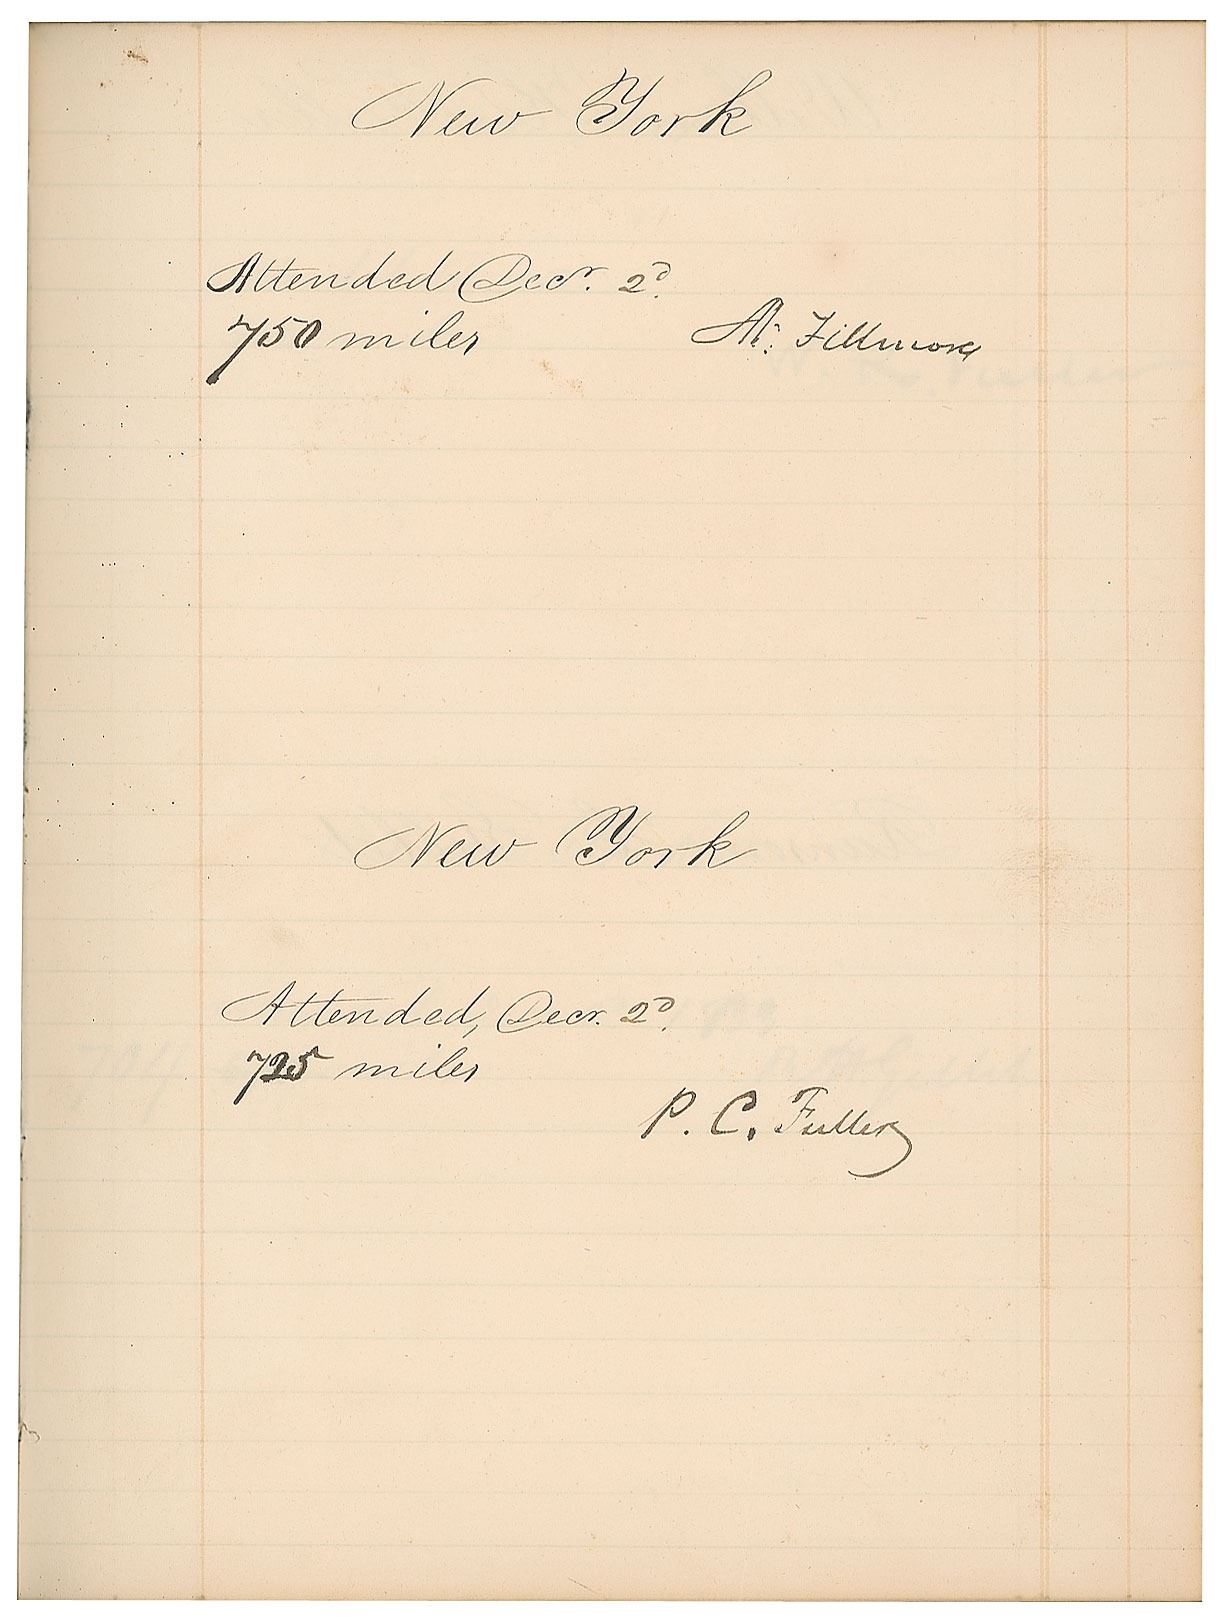 New York
Attended Decr. 2d.
750 miles
M. Fillmore
New York
Attended, Decr. 2d.
725 miles
P. C. Fuller